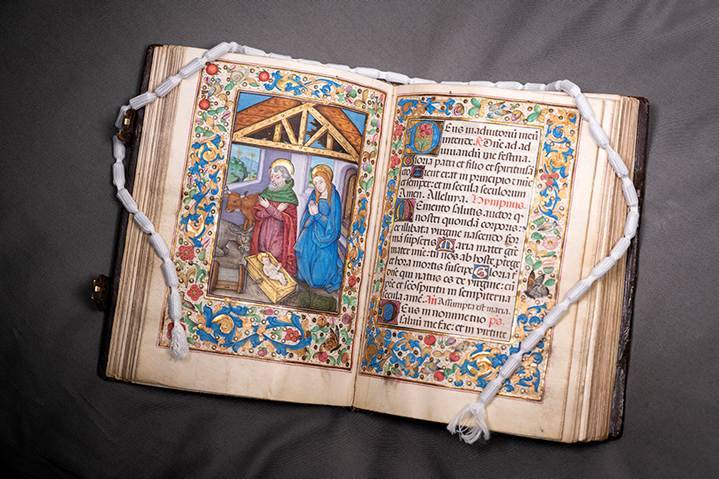 Deus in adiutoriū meū
intende. R Dne ad ad
iuuandū me festina.
Gloria patri et filio et spiritui sā
Sicut erat in principio et nūc
et semper: et in secula seculorum
Amen. Alleluya. Hympnus.
Memento salutis auctor q
nostri quondā corporis:
ex illibata virgine nascendo for
mā sūpseris Maria mater grē
mater mie: tu nos ab hoste ptege
et hora mortis suscipe Gloria ti
dne qui natus es de virgine: cū
pre et scō spiritu in sempiterna
secula amē. Añ Assumpta est maria.
Deus in nomine tuo ps.
saluū me fac: et in virtute